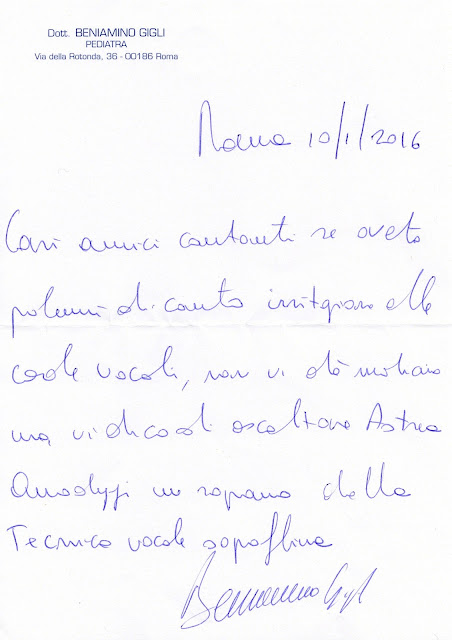 Dott. BENIAMINO GIGLI
PEDIATRA
Via della Rotonda, 36 - 00186 Roma
Roma 10/1/2016
Cari amici cantanti se avete
polemi di canto irritazione alle
corde vocali, non vi dò
ma vi dico di ascoltare Astrea
Amaduzzi un soprano della
Tecnica vocale sopraffina
Beniamino Gigli